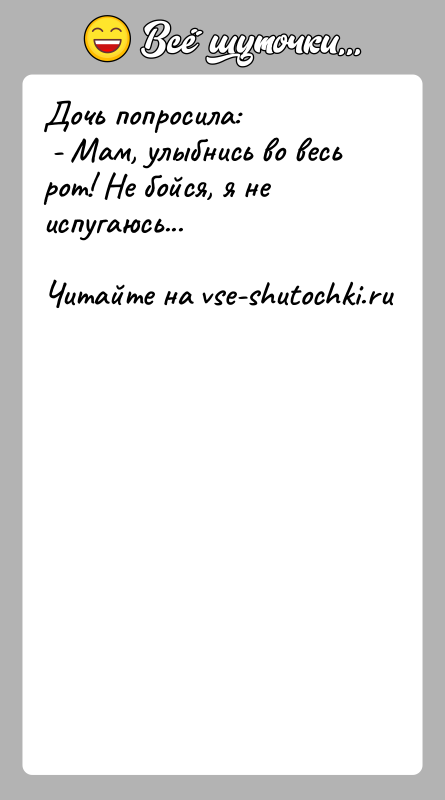 Всё шуточки...
Дочь попросила:
- Мам, улыбнись во весь
рот! Не бойся, я не
испугаюсь...
Читайте на vse-shutochki.ru